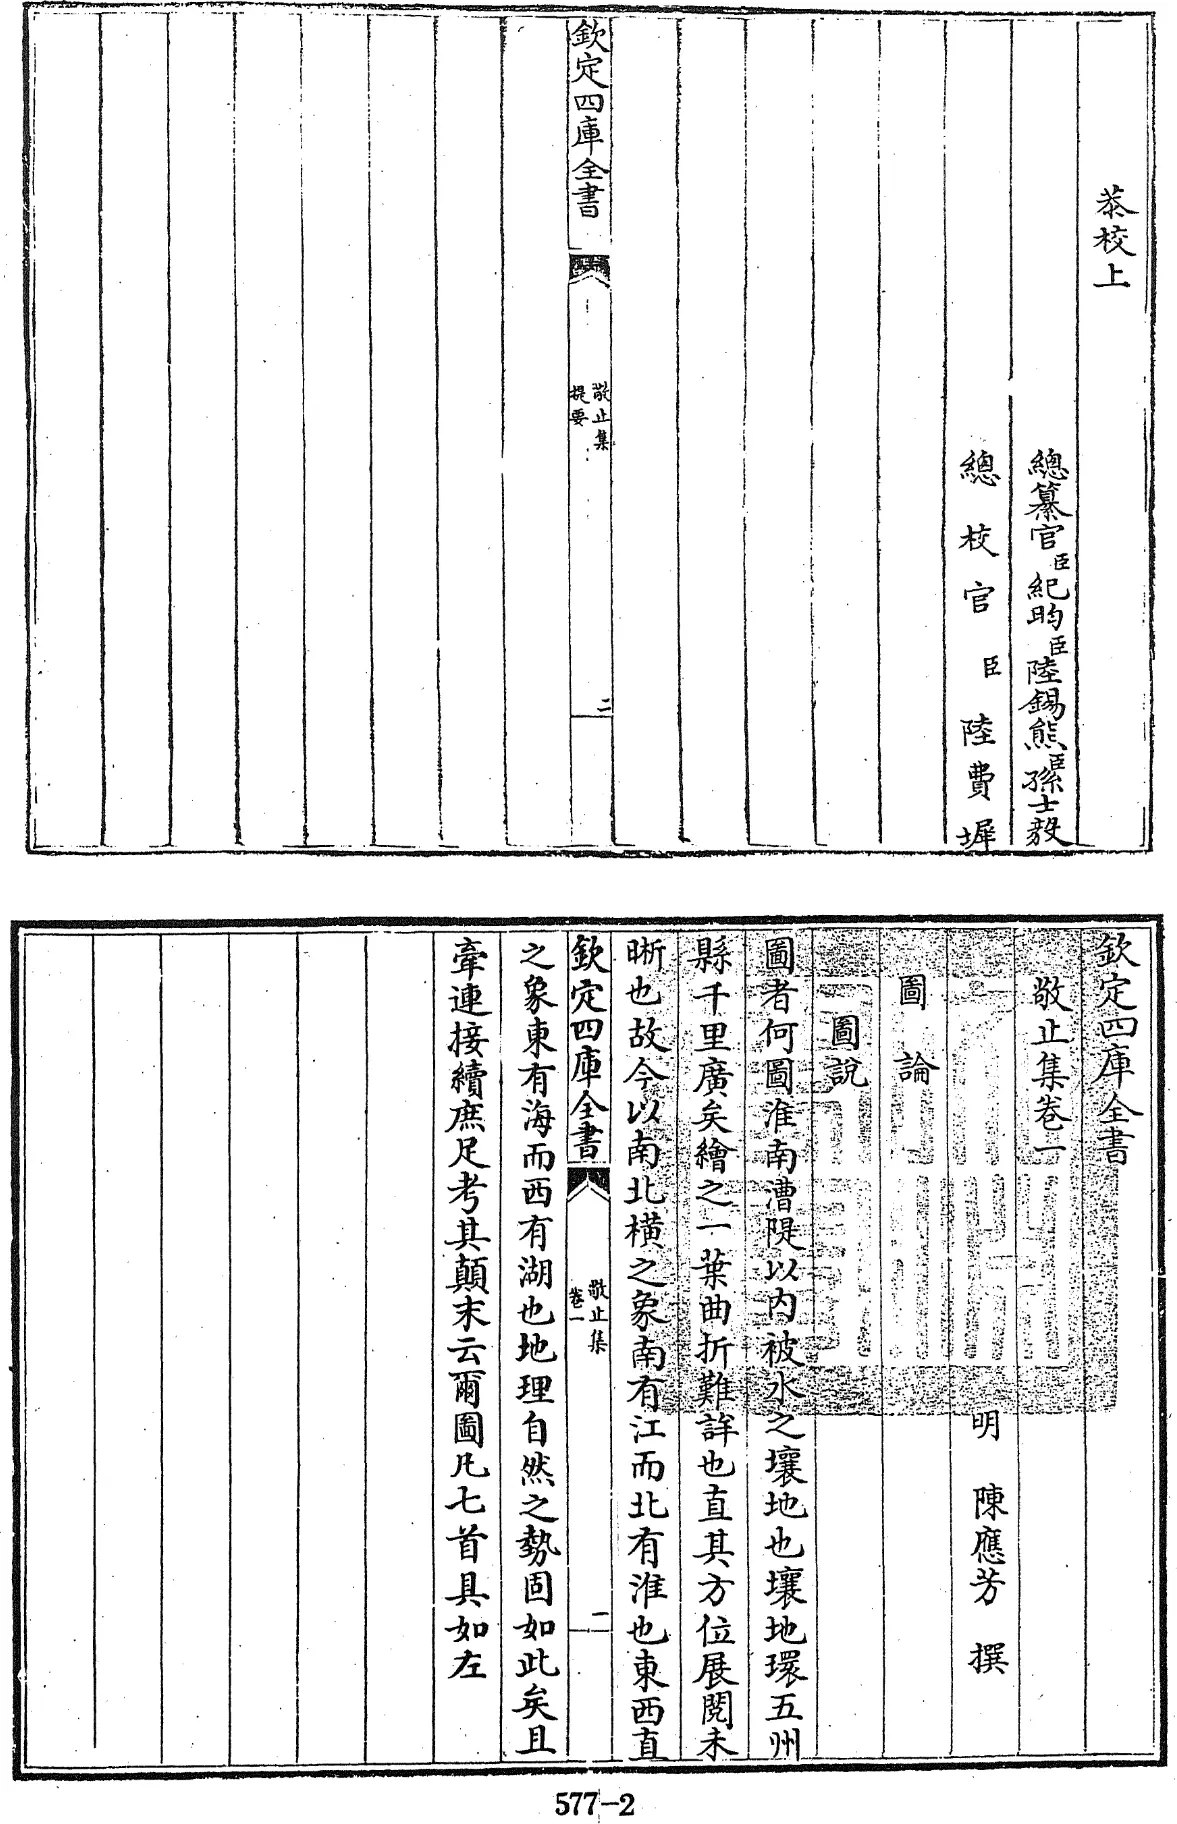 恭校上
總纂官臣紀昀臣陸錫熊臣孫士毅
總校官臣陸費墀
欽定四庫全書
敬止集
提要
二
欽定四庫全書
敬止集卷一
明 陳應芳 撰
圖論
圖說
圖者何圖淮南漕隄以內被水之壤地也壤地環五州
縣千里廣矣繪之一葉曲折難詳也直其方位展閱未
晰也故今以南北橫之象南有江而北有淮也東西直
欽定四庫全書
敬止集
卷一
一
之象東有海而西有湖也地理自然之勢固如此矣且
牽連接續庶足考其顛末云爾圖凡七首具如左
577-2